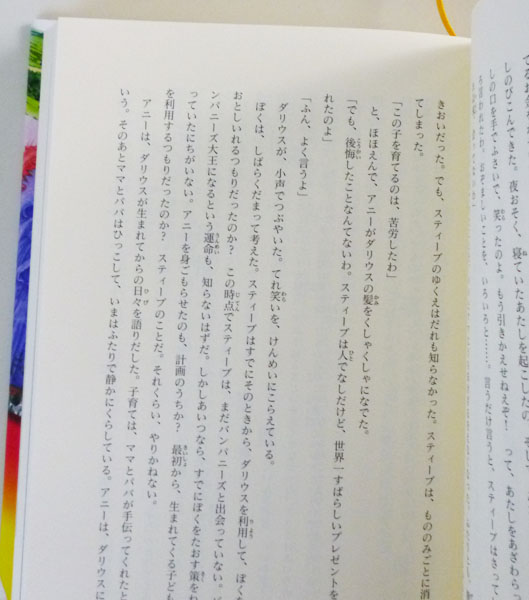 しのびこんできた。夜おそく、寝ていたあたしを起こしたの。
しの口を手でふさいで、笑ったのよ。もう引きかえせねえぞ！　って、あたしをあざわらっ
ろ言われたわ、おそろしいことを、いろいろと……。言うだけ言うと、スティーブはさって
きおいだった。でも、スティーブのゆくえはだれも知らなかった。スティーブは、もののみごとに消
てしまった。
「この子を育てるのは、苦労したわ」
と、ほほえんで、アニーがダリウスの髪をくしゃくしゃになでた。
「でも、後悔したことなんてないわ。スティーブは人でなしだけど、世界一すばらしいプレゼントを
れたのよ」
「ふん、よく言うよ」
ダリウスが、小声でつぶやいた。てれ笑いを、けんめいにこらえている。
ぼくは、しばらくだまって考えた。スティーブはすでにそのときから、ダリウスを利用して、ぼくを
おとしいれるつもりだったのか？　この時点でスティーブは、まだバンパニーズと出会っていない。
ンパニーズ大王になるという運命も、知らないはずだ。しかしあいつなら、すでにぼくをたおす策を
っていたにちがいない。アニーを身ごもらせたのも、計画のうちか？　最初から、生まれてくる子ども
を利用するつもりだったのか？　スティーブのことだ。それくらい、やりかねない。
アニーは、ダリウスが生まれてからの日々を語りだした。子育ては、ママとパパが手伝ってくれたと
いう。そのあとママとパパはひっこして、いまはふたりで静かにくらしている。アニーは、ダリウスに